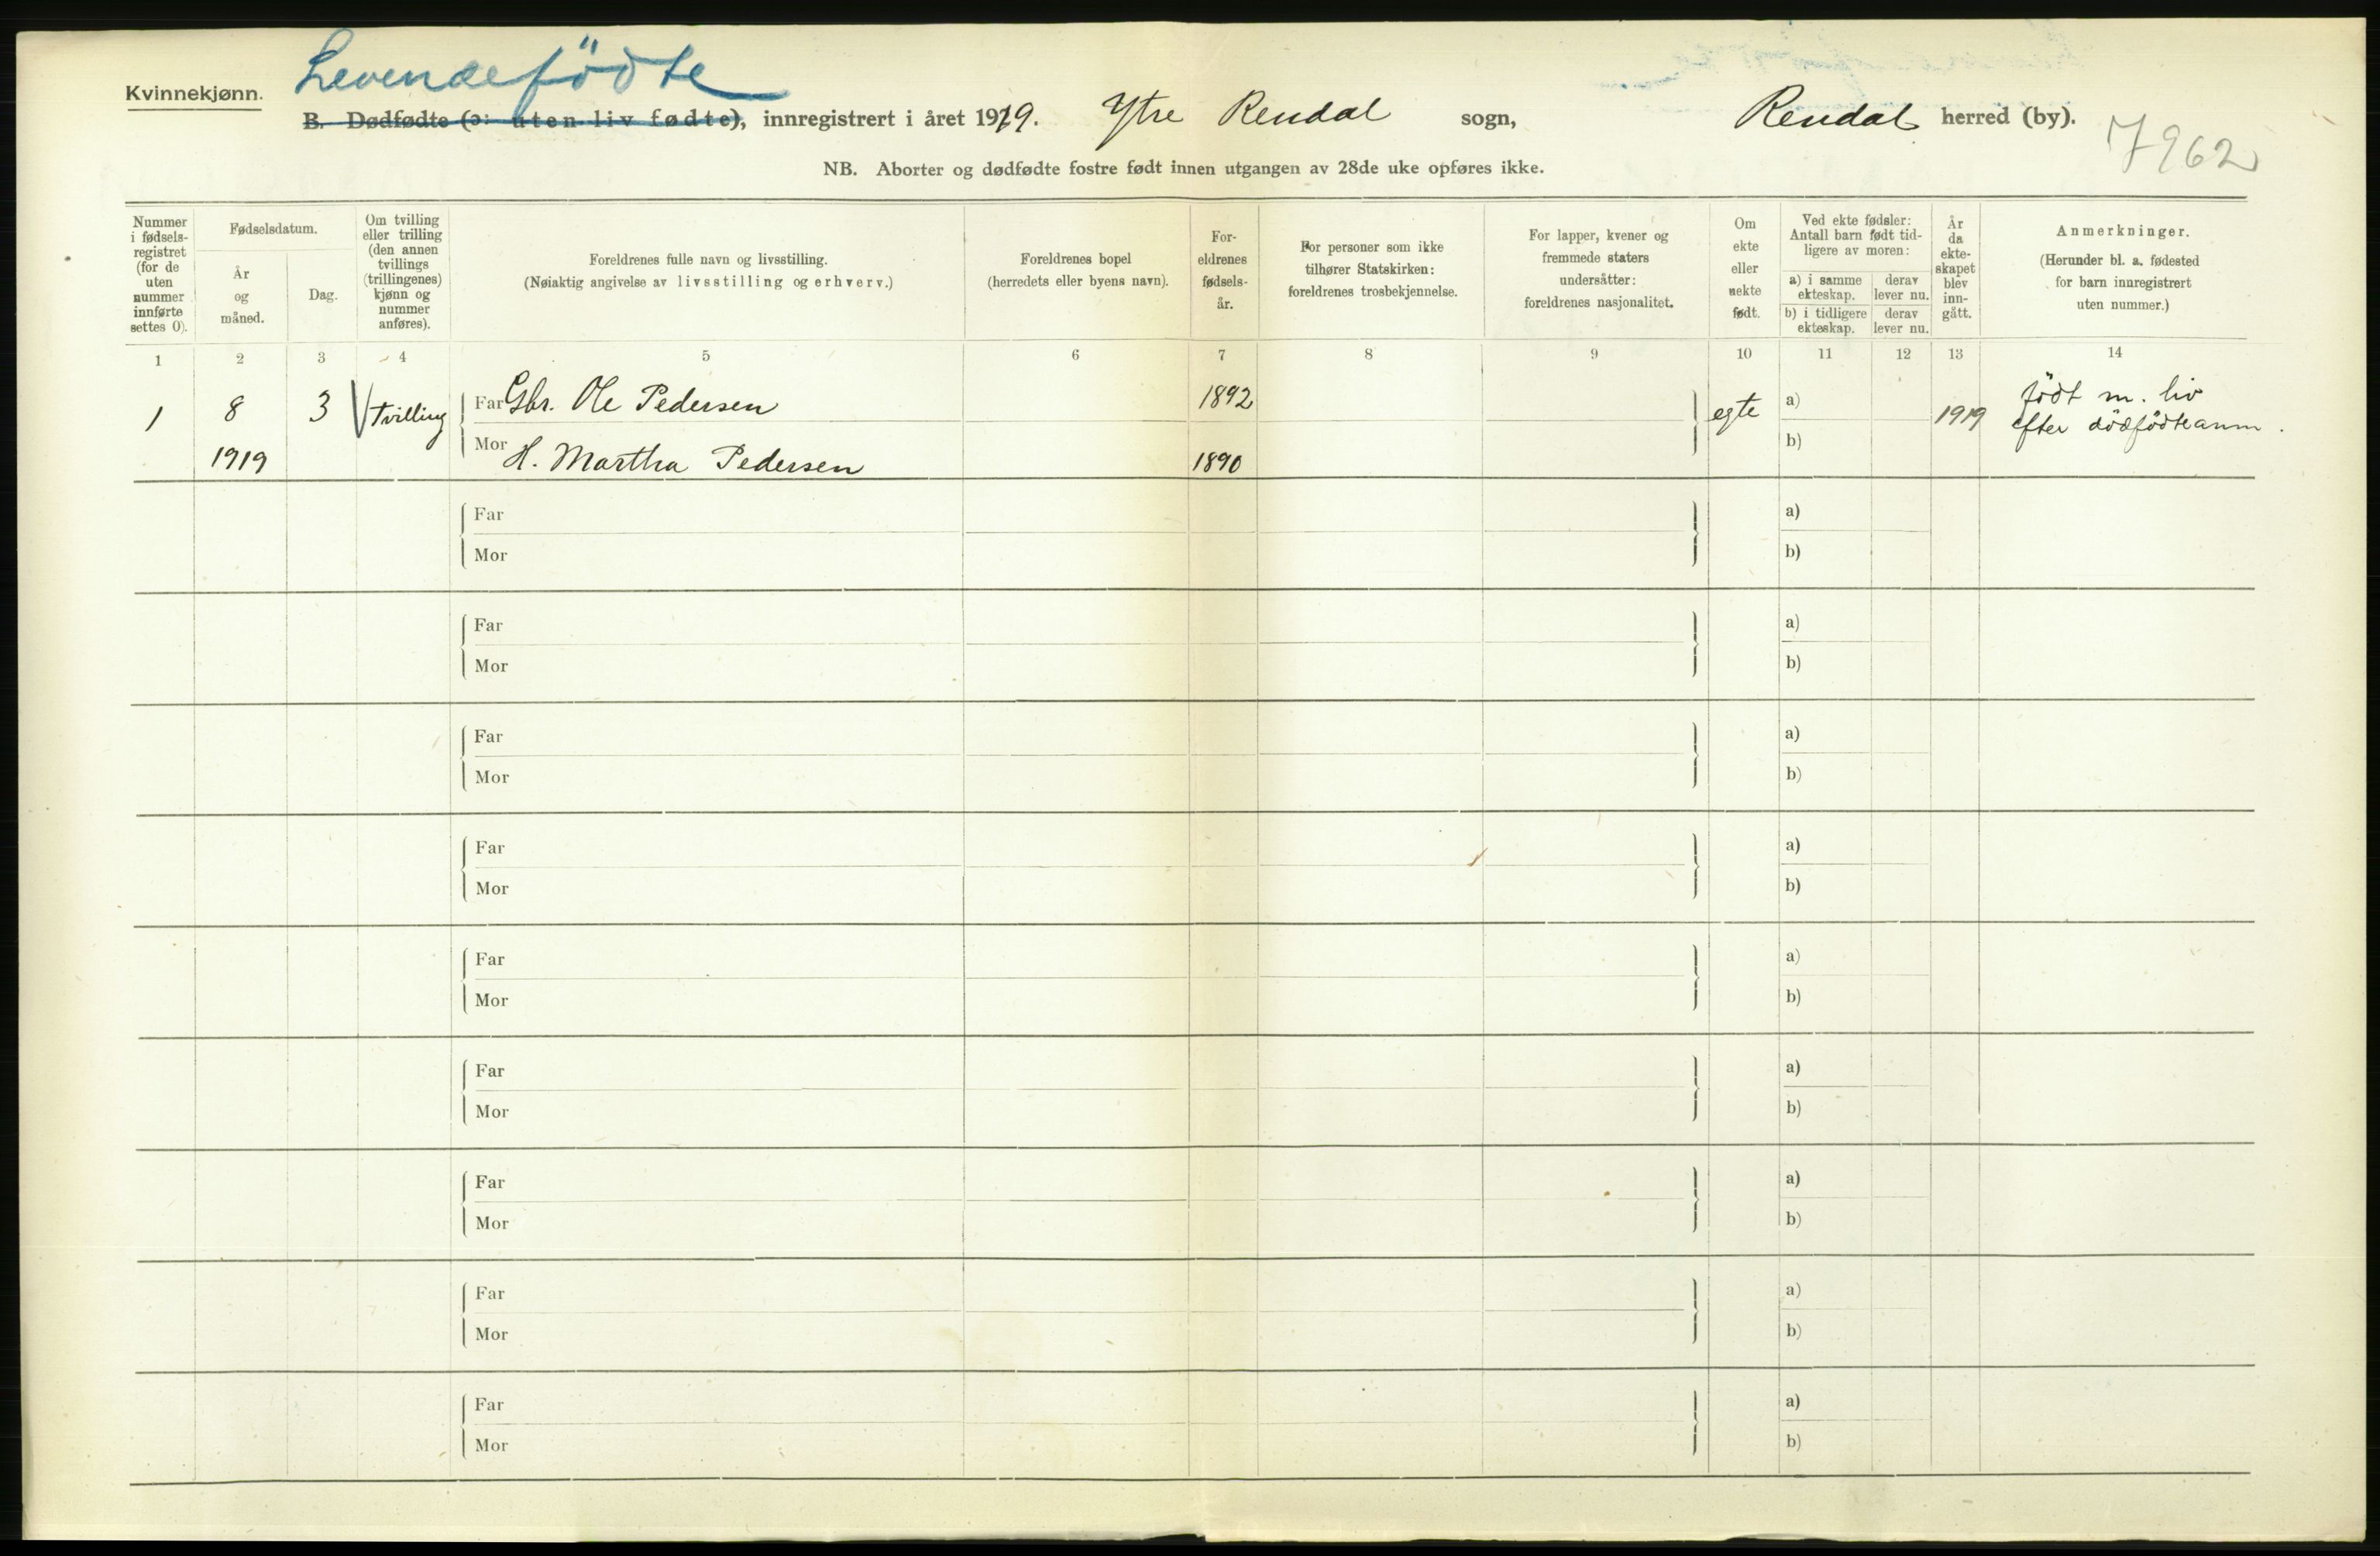 Levendefödte
Kvinnekjønn.
B. Dødfødte (ɔ: uten liv fødte), innregistrert i året 1919. Ytre Rendal sogn, Rendal herred (by).
7962
NB. Aborter og dødfødte fostre født innen utgangen av 28de uke opføres ikke.
Nummer
i fødsels-
registret
(for de
uten
nummer
innførte
settes 0).
Fødselsdatum.
År
og
måned.
Dag.
Om tvilling
eller trilling
(den annen
tvillings
(trillingenes)
kjønn og
nummer
anføres).
Foreldrenes fulle navn og livsstilling.
(Nøiaktig angivelse av livsstilling og erhverv.)
Foreldrenes bopel
(herredets eller byens navn).
For-
eldrenes
fødsels-
år.
For personer som ikke
tilhører Statskirken:
foreldrenes trosbekjennelse.
For lapper, kvener og
fremmede staters
undersåtter:
foreldrenes nasjonalitet.
Om
ekte
eller
uekte
født.
Ved ekte fødsler:
Antall barn født tid-
ligere av moren:
a) i samme
ekteskap.
derav
lever nu.
b) i tidligere
ekteskap.
derav
lever nu.
År
da
ekte-
skapet
blev
inn-
gått.
Anmerkninger.
(Herunder bl. a. fødested
for barn innregistrert
uten nummer.)
1 2 3 4 5 6 7 8 9 10 11 12 13 14
1 8 3 Tvilling Far Gbr. Ole Pedersen 1892 egte a) 1919 født m. liv
efter dödfödteanm.
1919 Mor H. Martha Pedersen 1890 b)
Far a)
Mor b)
Far a)
Mor b)
Far a)
Mor b)
Far a)
Mor b)
Far a)
Mor b)
Far a)
Mor b)
Far a)
Mor b)
Far a)
Mor b)
Far a)
Mor b)